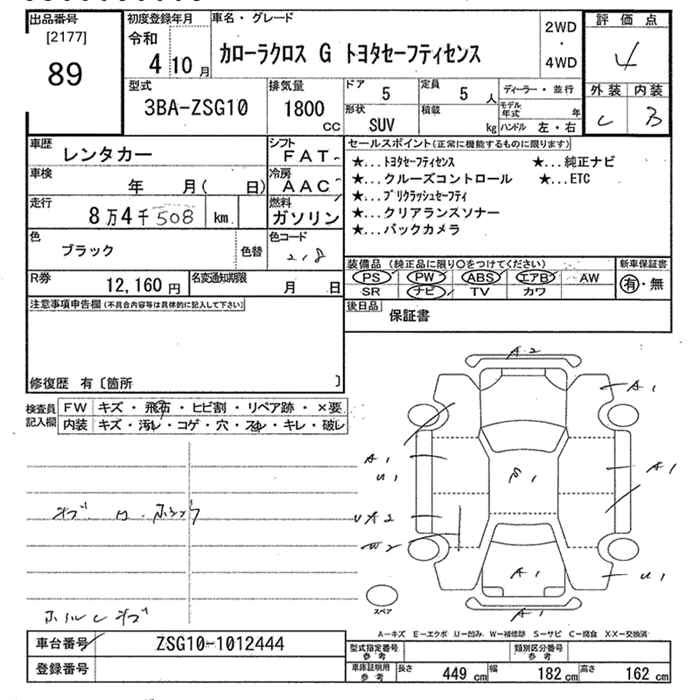 出品番号
[2177]
89
初度登録年月
令和
4年10月
車名・グレード
カローラクロス G トヨタセーフティセンス
2WD
・
4WD
評価点
4
外装 内装
C B
型式
3BA-ZSG10
排気量
1800
CC
ドア 5
定員 5人
形状 SUV
積載 kg
ディーラー・並行
モデル年式 年
ハンドル 左・右
車歴
レンタカー
シフト
FAT
車検
年 月( 日)
冷房
AAC
走行
8万4千508 km
燃料
ガソリン
色
ブラック
色替
色コード
218
R券
12,160円
名変通知期限
月 日
セールスポイント(正常に機能するものに限ります)
★...トヨタセーフティセンス ★...純正ナビ
★...クルーズコントロール ★...ETC
★...プリクラッシュセーフティ
★...クリアランスソナー
★...バックカメラ
装備品(純正品に限り○をつけてください)
PS PW ABS エアB AW
SR ナビ TV カワ
新車保証書
有・無
後日品
保証書
注意事項申告欄(不具合内容等は具体的に記入して下さい)
修復歴 有〔箇所 〕
検査員
記入欄
FW キズ・飛石・ヒビ割・リペア跡・×要
内装 キズ・汚れ・コゲ・穴・スレ・キレ・破レ
A2
A1
A1
U1
A1
A1
U1
A1
スペア
A-キズ E-エクボ U-凹み W-補修跡 S-サビ C-腐食 XX-交換済
車台番号
ZSG10-1012444
登録番号
型式指定番号
参考
類別区分番号
参考
車庫証明用
参考
長さ 449 cm 幅 182 cm 高さ 162 cm